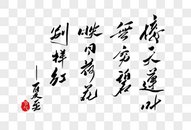 接天蓮叶
無穷碧
映日荷花
别样红
—夏至